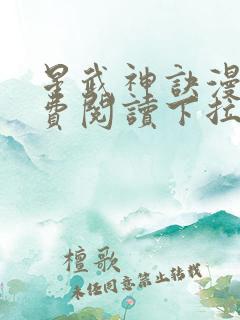 星武神訣漫
費閱讀下拉
檀歌
未经同意禁止转载